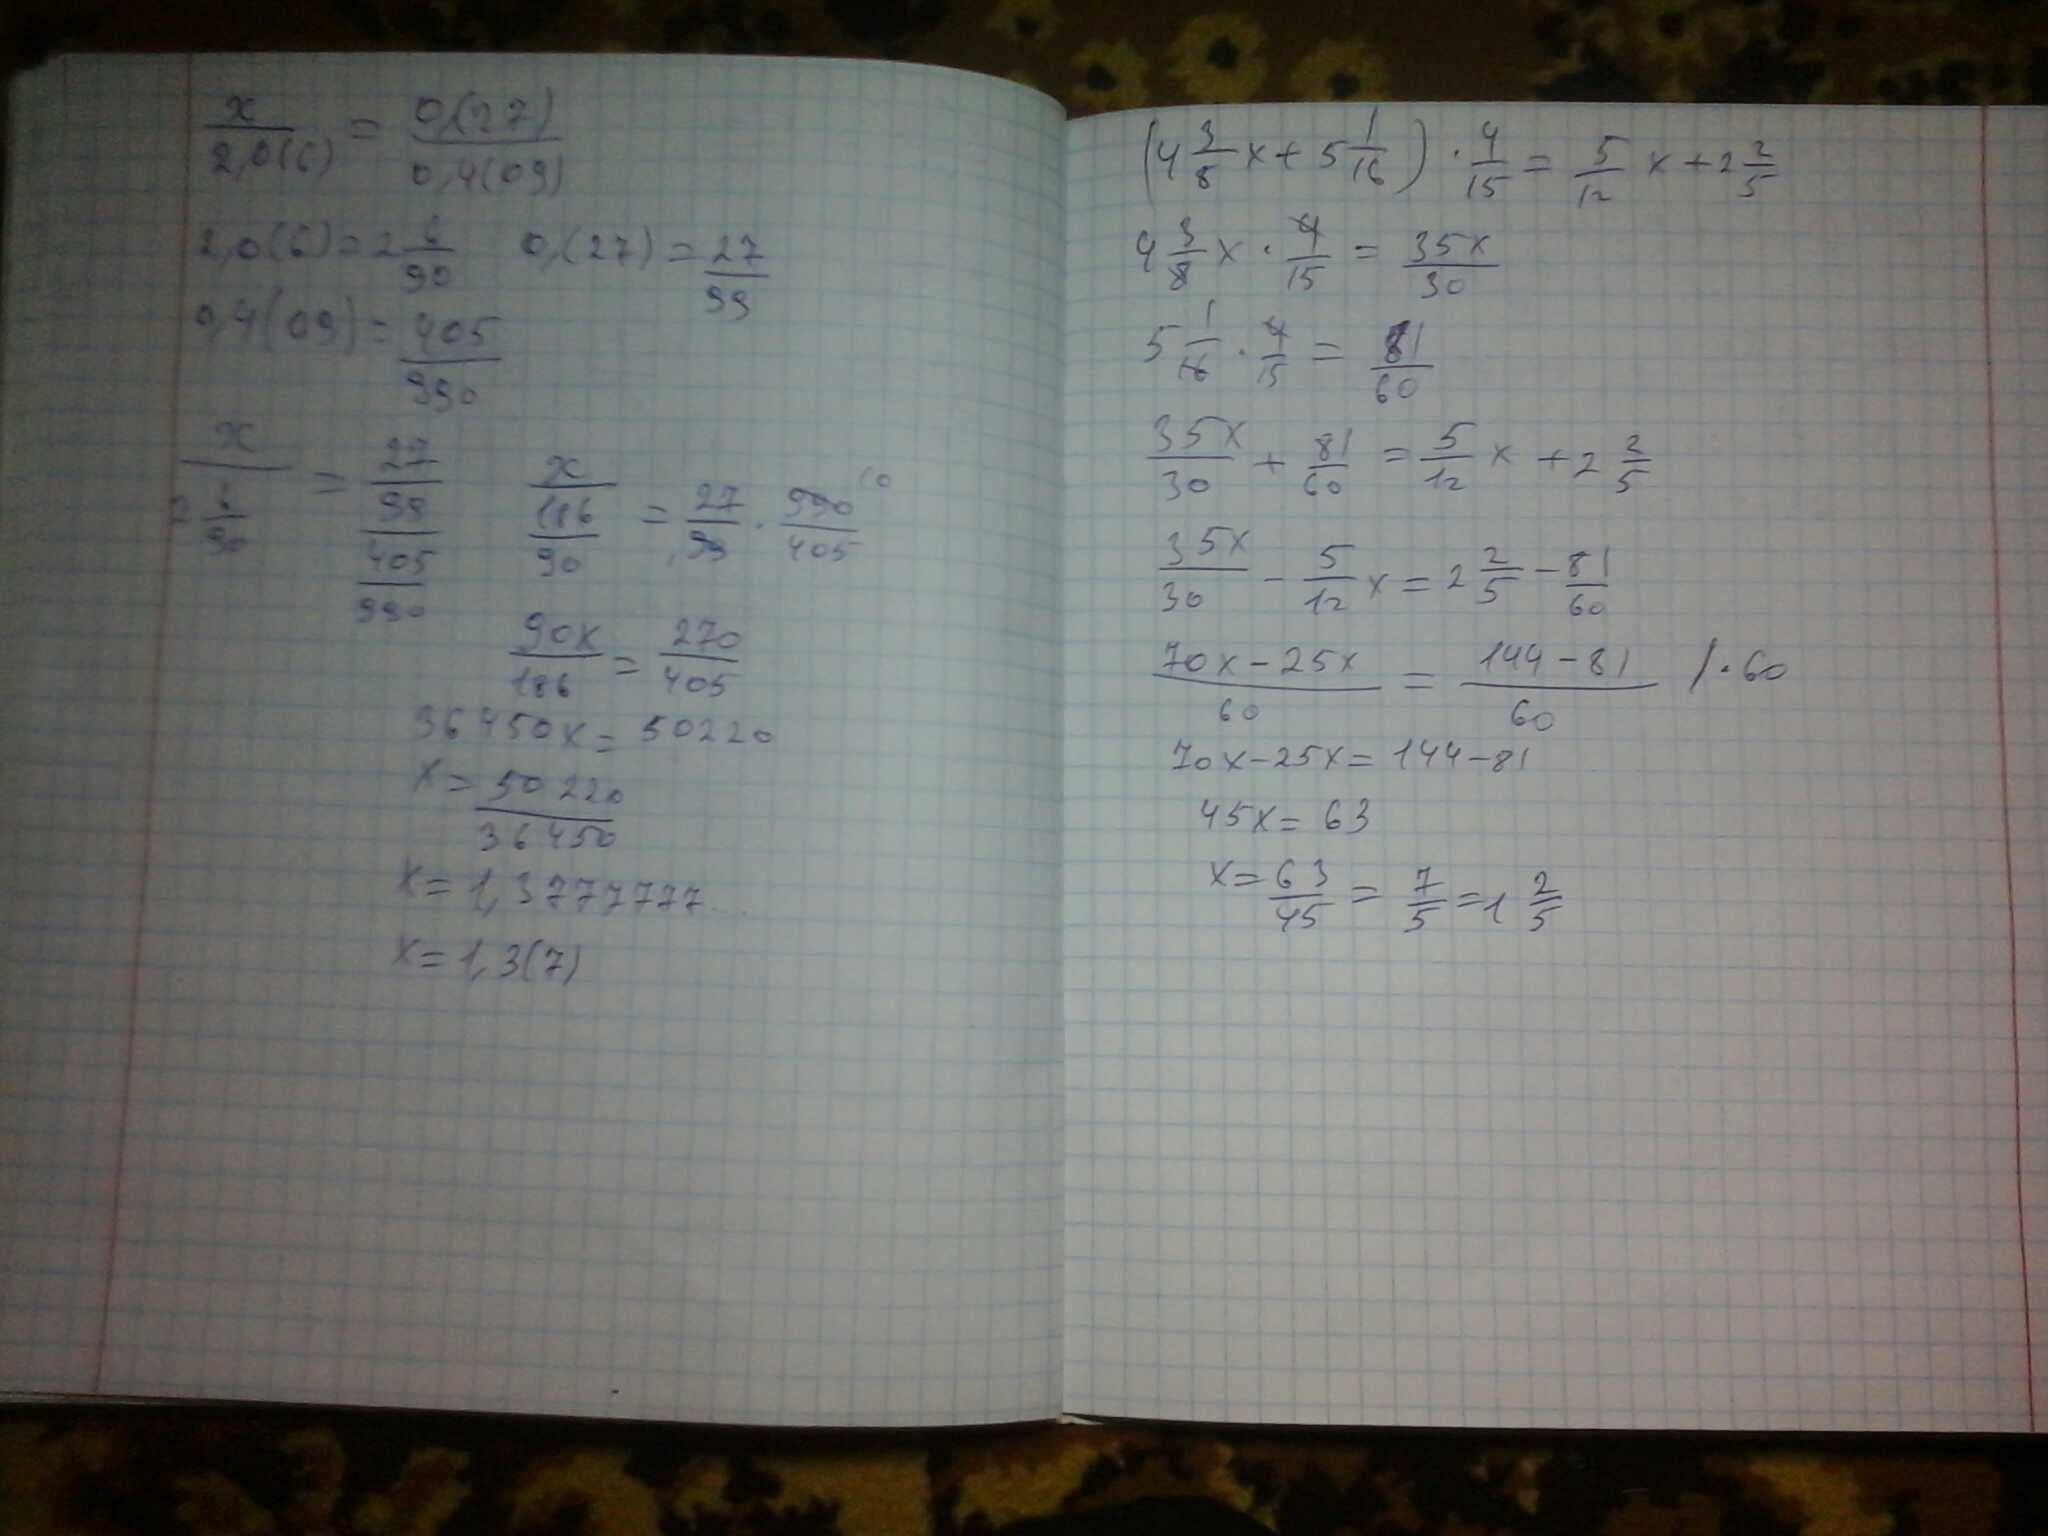 x/2,0(6) = 0,(27)/0,4(09)
2,0(6)=2 6/90 0,(27)=27/99
0,4(09)=405/990
x/(2 6/90) = (27/99)/(405/990) x/(186/90) = 27/99 · 990/405 10
90x/186 = 270/405
36450x=50220
x=50220/36450
x=1,3777777...
x=1,3(7)
(4 3/8 x+5 1/16) · 4/15 = 5/12 x+2 2/5
4 3/8 x · 4/15 = 35x/30
5 1/16 · 4/15 = 81/60
35x/30 + 81/60 = 5/12 x +2 2/5
35x/30 - 5/12 x = 2 2/5 - 81/60
(70x-25x)/60 = (144-81)/60 /·60
70x-25x=144-81
45x=63
x=63/45 = 7/5 =1 2/5